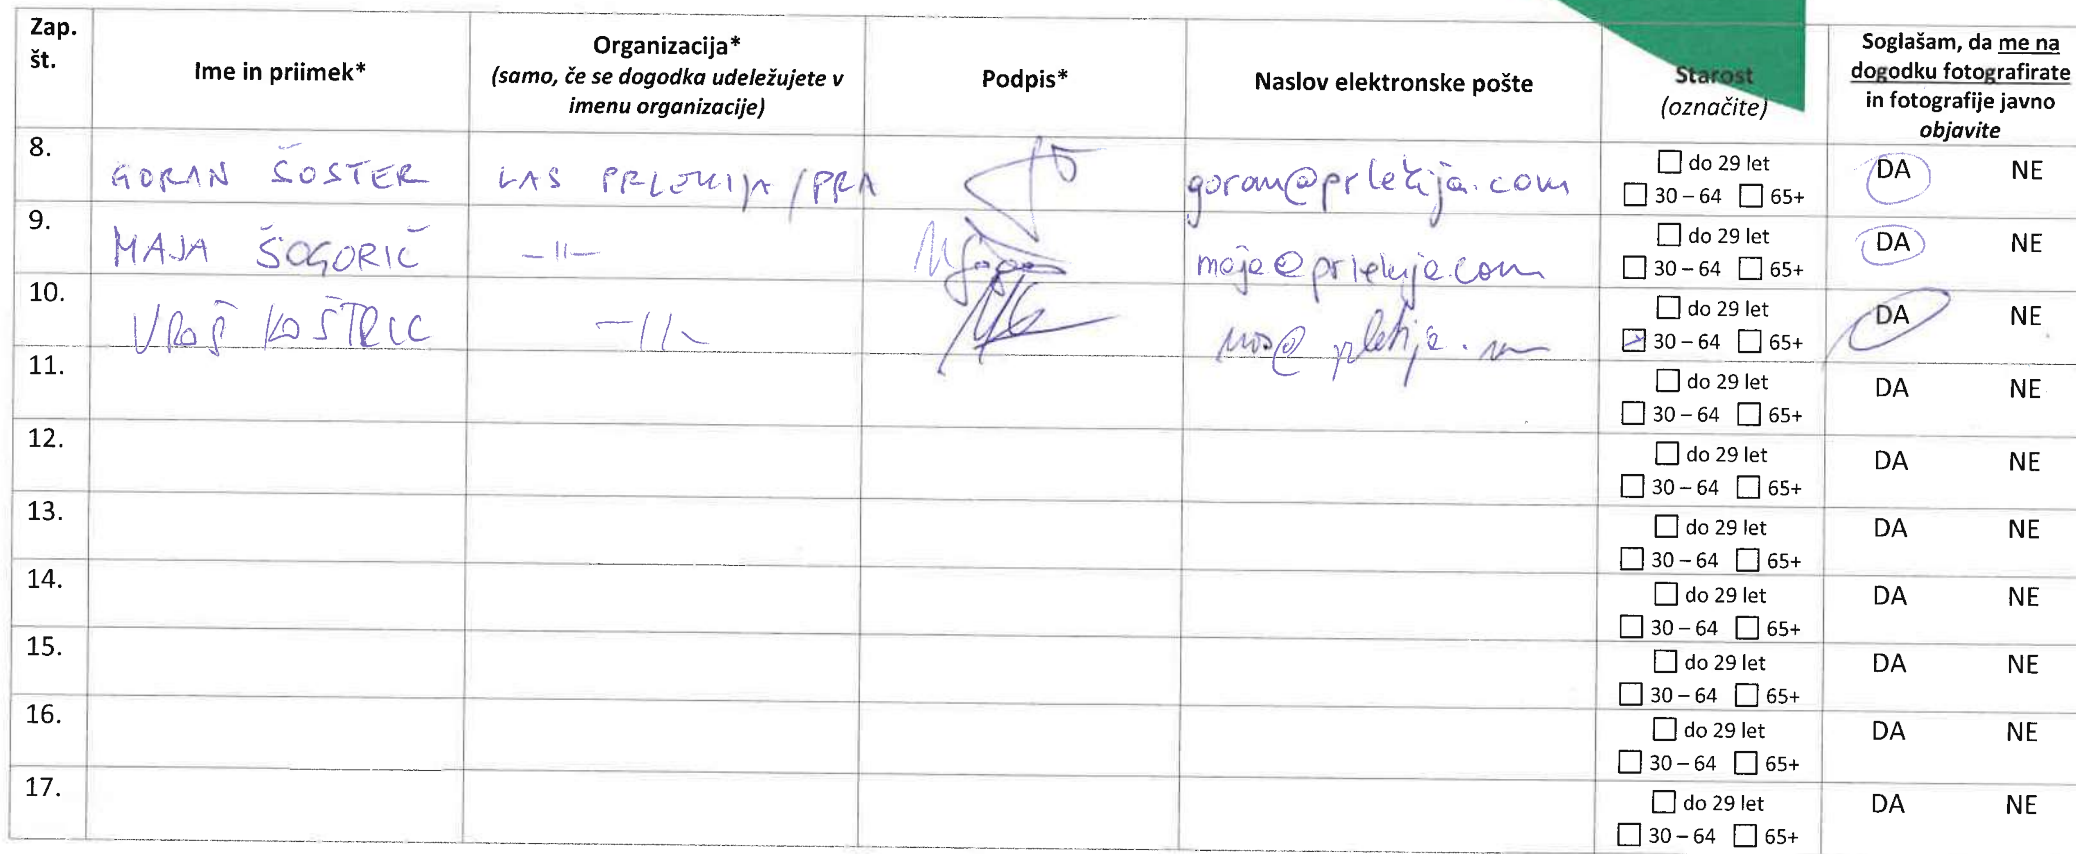 Zap. št. Ime in priimek* Organizacija* (samo, če se dogodka udeležujete v imenu organizacije) Podpis* Naslov elektronske pošte Starost (označite) Soglašam, da me na dogodku fotografirate in fotografije javno objavite
8. GORAN ŠOSTER LAS PRLEKIJA/PRA goran@prlekija.com ☐ do 29 let ☐ 30 – 64 ☐ 65+ DA NE
9. MAJA ŠOGORIČ –11– maja@prlekija.com ☐ do 29 let ☐ 30 – 64 ☐ 65+ DA NE
10. UROŠ KOŠTRIC –//– ☐ do 29 let ☑ 30 – 64 ☐ 65+ DA NE
11. ☐ do 29 let ☐ 30 – 64 ☐ 65+ DA NE
12. ☐ do 29 let ☐ 30 – 64 ☐ 65+ DA NE
13. ☐ do 29 let ☐ 30 – 64 ☐ 65+ DA NE
14. ☐ do 29 let ☐ 30 – 64 ☐ 65+ DA NE
15. ☐ do 29 let ☐ 30 – 64 ☐ 65+ DA NE
16. ☐ do 29 let ☐ 30 – 64 ☐ 65+ DA NE
17. ☐ do 29 let ☐ 30 – 64 ☐ 65+ DA NE